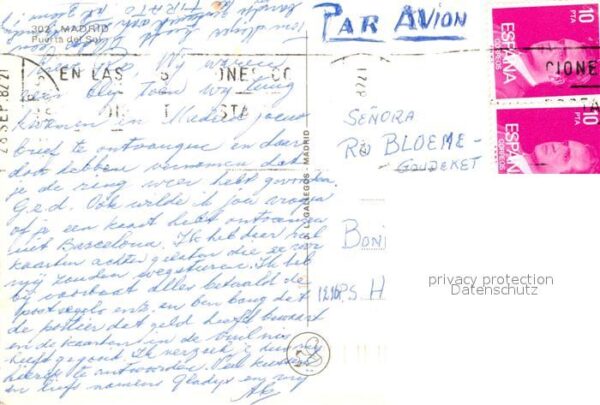 302 - MADRID
Puerta del Sol
PAR AVION
28 SEP. 82 21
EN LAS
ONES CO
STA
CIONE
10
PTA
ESPAÑA
CORREOS
10
PTA
ESPAÑA
CORREOS
Wij waren
blij toen wij terug
kwamen in Madrid jouw
brief te ontvangen en daar
door hebben vernomen dat
je de ring weer hebt gevonden
G.e.d. Ook wilde ik jou vragen
of je een kaart hebt ontvangen
uit Barcelona. Ik heb daar heel
kaarten achter gelaten die er voor
mij zouden wegsturen. Ik heb
bij voorbaat alles betaald de
postzegels enz. en ben bang dat
de portier dat geld heeft bewaart
en de kaarten in de vuilnis
heeft gegooid. Ik verzoek je dus mij
hierop te antwoorden. Veel kussen
en liefs namens Gladys en mij
L. GALLEGOS - MADRID
SEÑORA
BLOEME-
GOUDEKET
BONI
H
privacy protection
Datenschutz